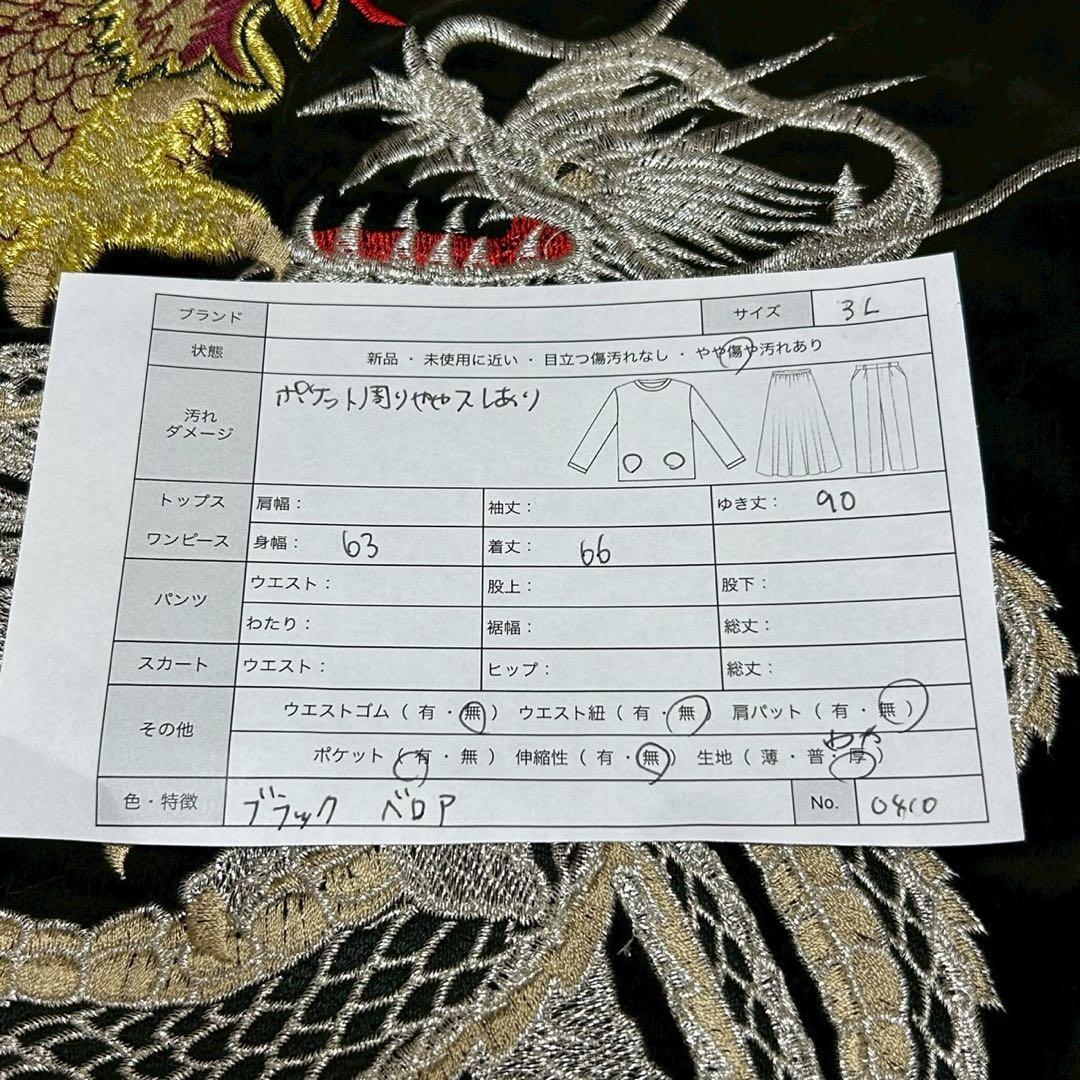 ブランド サイズ 3L
状態 新品 ・ 未使用に近い ・ 目立つ傷汚れなし ・ やや傷や汚れあり
汚れ ダメージ ポケット周りややスレあり
トップス 肩幅： 袖丈： ゆき丈： 90
ワンピース 身幅： 63 着丈： 66
パンツ ウエスト： 股上： 股下：
わたり： 裾幅： 総丈：
スカート ウエスト： ヒップ： 総丈：
その他 ウエストゴム （ 有 ・ 無 ） ウエスト紐 （ 有 ・ 無 ） 肩パット （ 有 ・ 無 ）
わた
ポケット （ 有 ・ 無 ） 伸縮性 （ 有 ・ 無 ） 生地 （ 薄 ・ 普 ・ 厚 ）
色・特徴 ブラック ベロア No. 0410